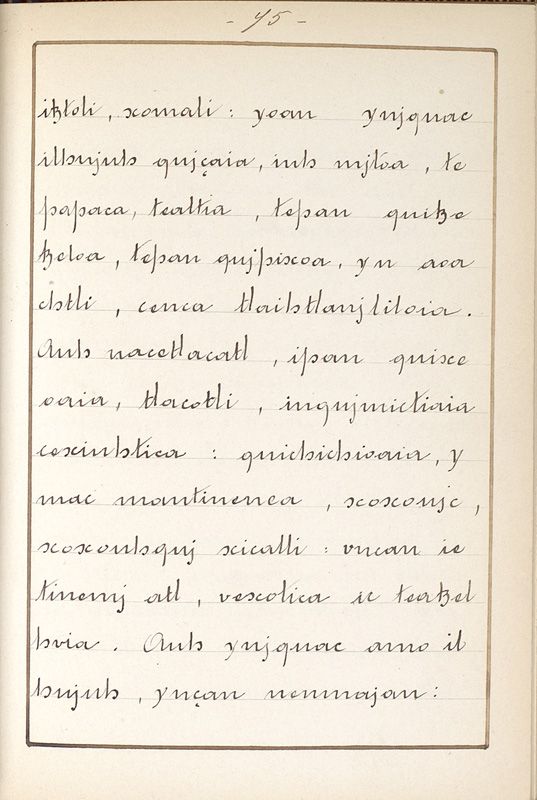 - 45 -
iꜩtoli, xomali: yoan ynjquac
ilhujuh qujçaia, iuh mjtoa, te
papaca, tealtia, tepan quiꜩe
ꜩeloa, tepan qujpixoa, yn aca
chtli, cenca tlaihtlanjliloia.
Auh nacetlacatl, ipan quixe
oaia, tlacotli, inqujmictiaia
cexiuhtica: quichichioaia, y
mac mantinenca, xoxoujc,
xoxouhquj xicalli: vncan ie
tinemj atl, vexotica ic teaꜩel
hvia. Auh ynjquac amo il
hujuh, ynçan nenmajan: